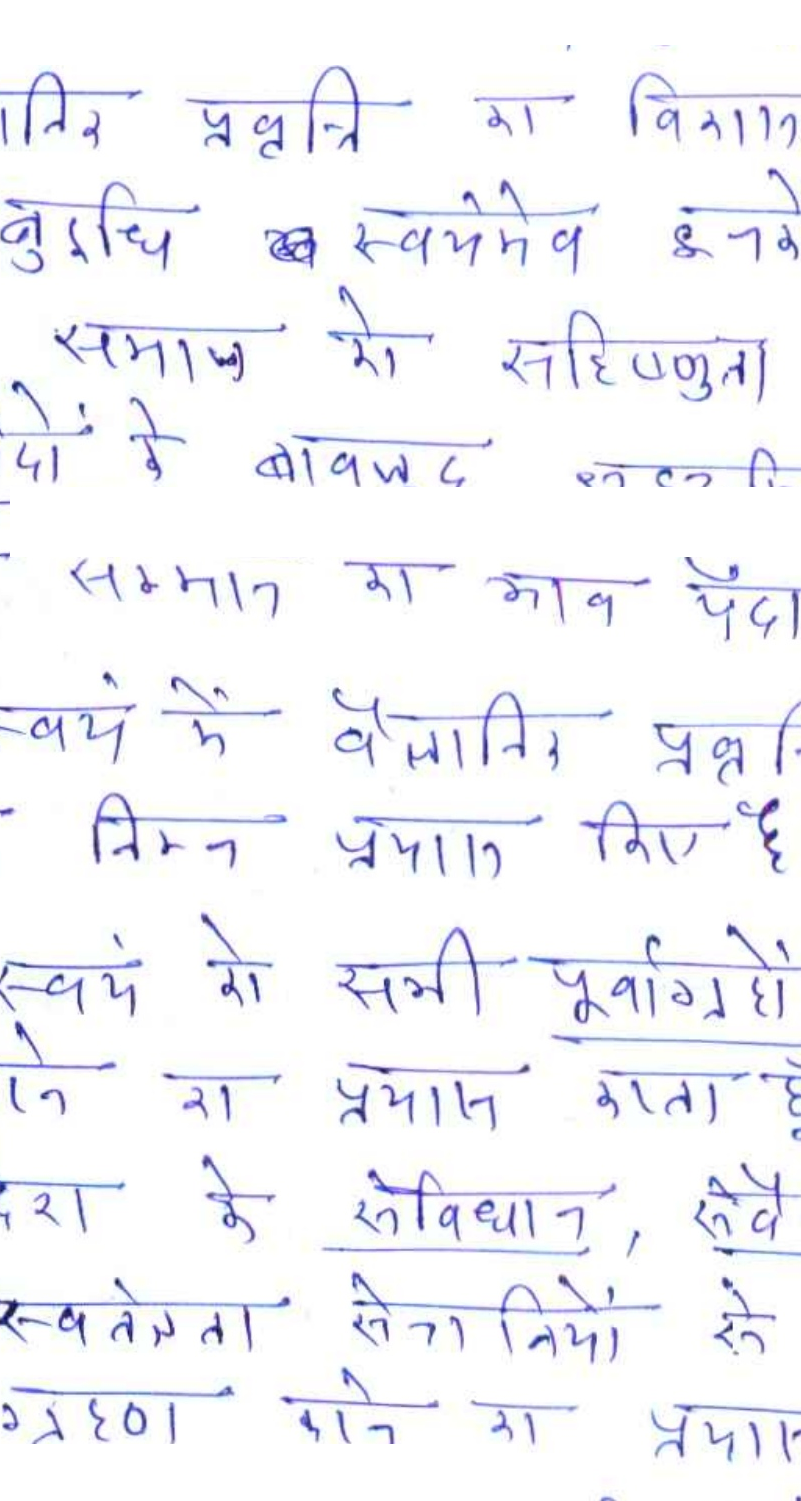 प्रवृत्ति का विकास
स्वयंमेव इनके
समाज को सहिष्णुता
के बावजूद
सम्मान का भाव पैदा
में वैज्ञानिक
निम्न प्रयास किए हैं
स्वयं को सभी पूर्वाग्रहों
का प्रयास करता हूँ
के संविधान,
स्वतंत्रता सेनानियों से
ग्रहण करने का प्रयास